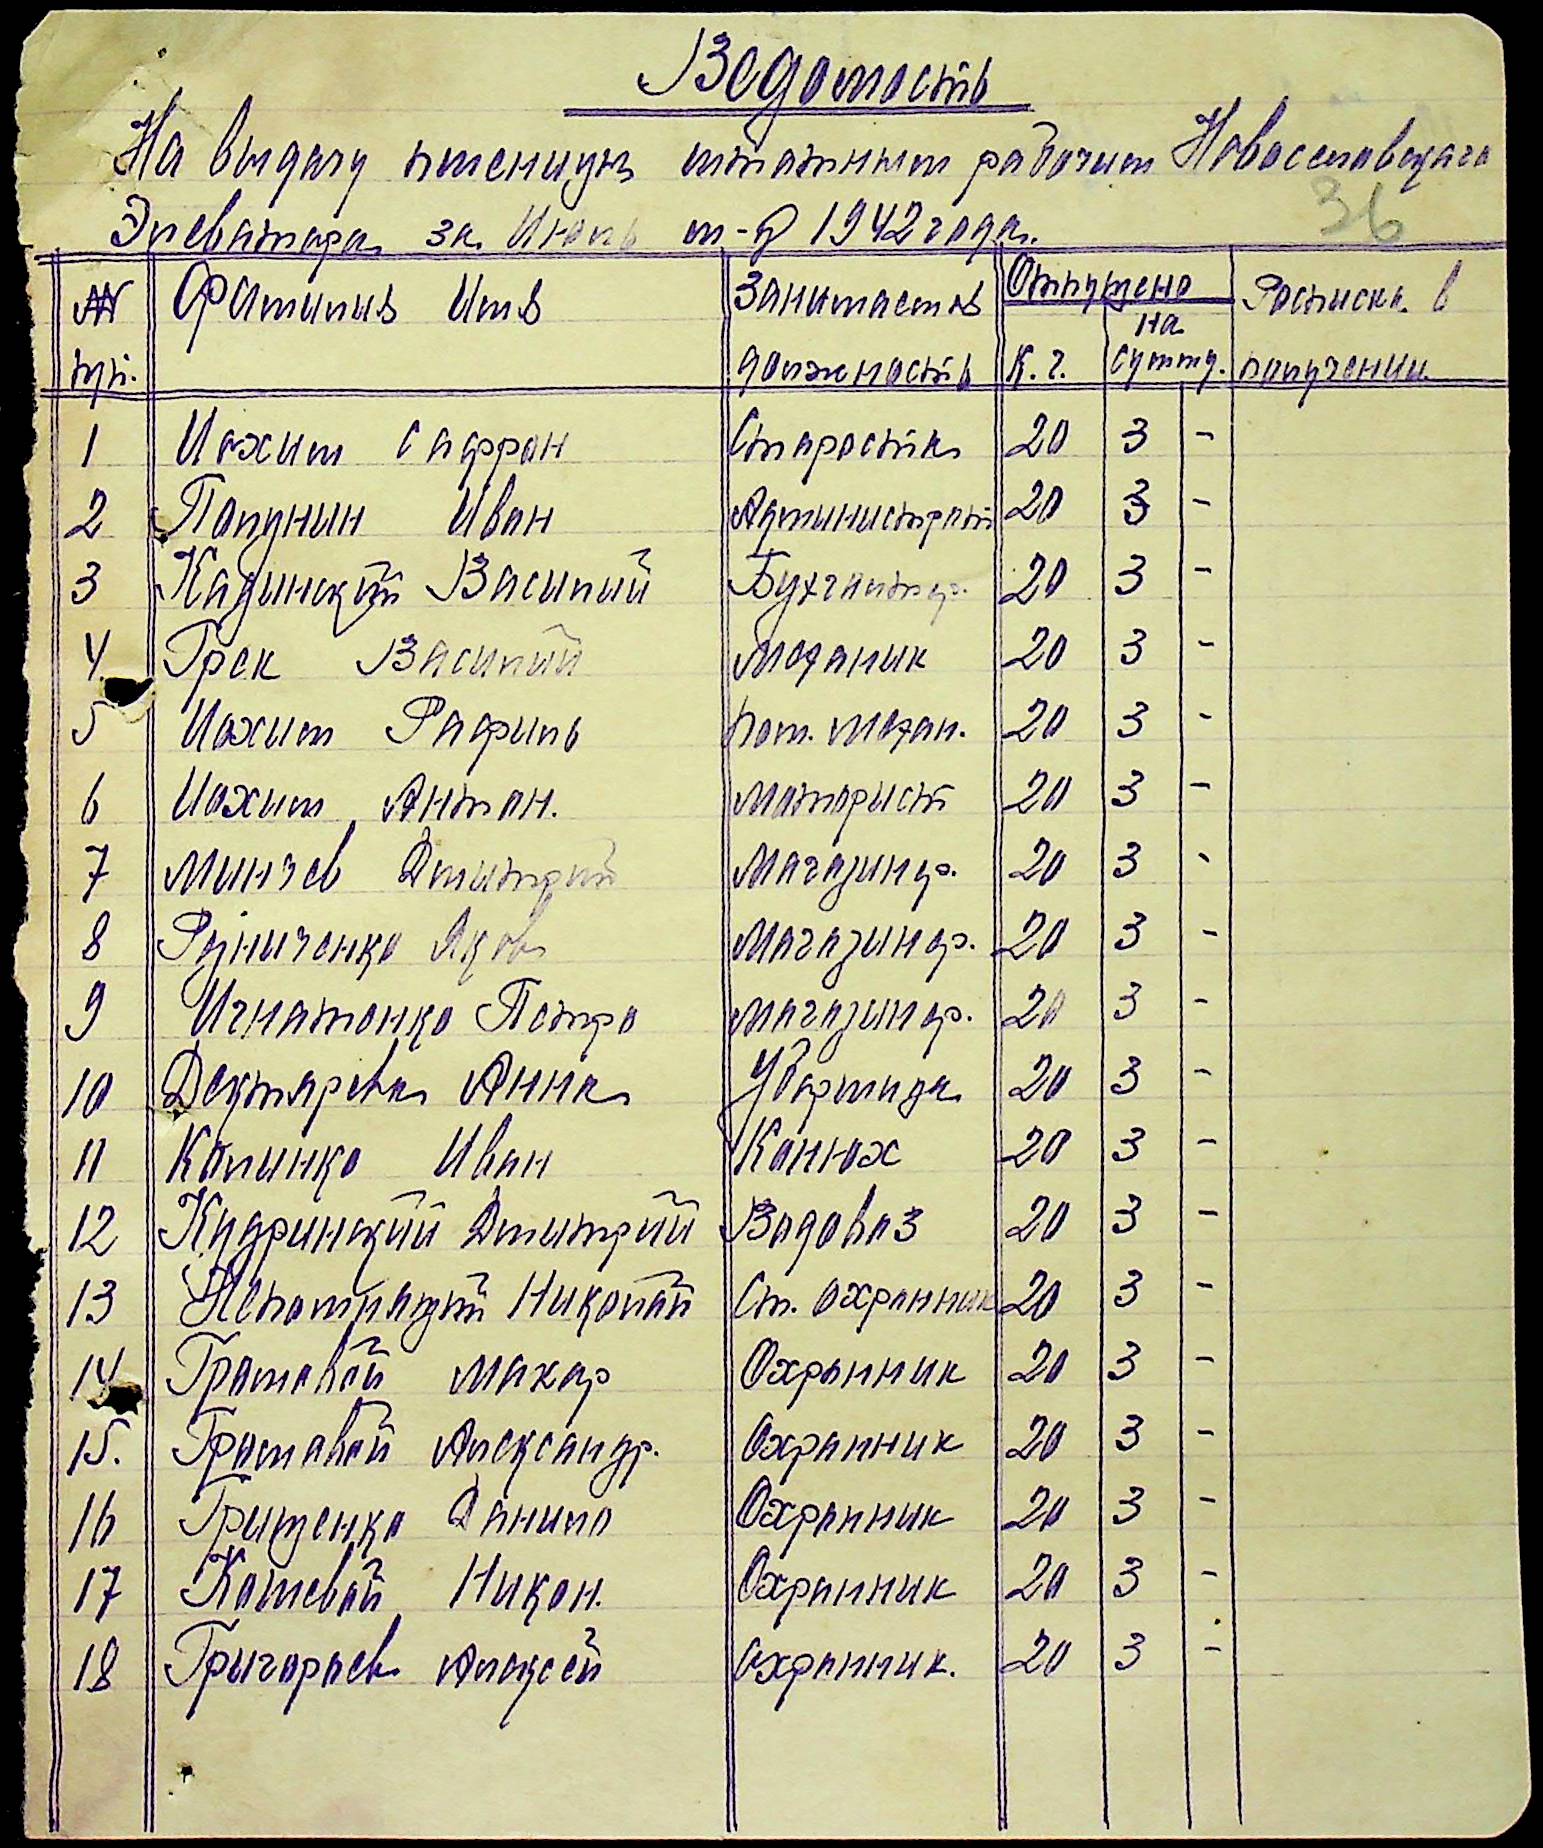 Ведомость
На выдачу пшеницы штатным рабочим Новоселовскаго
Элеватара за Июль м-ц 1942 года.
36
№ Фамилия Имя Занимаемая Отпущено Росписка в
на
пп. должность К.г. сумму. получении
1 Иохим Сафрон Старостка 20 3 -
2 Полунин Иван Администрат 20 3 -
3 Кадинский Василий Бухгалтер. 20 3 -
4 Грек Василий Механик 20 3 -
5 Иохим Рафиль пом. механ. 20 3 -
6 Иохим Антон. Моторист 20 3 -
7 Минчев Дмитрий Магазинер. 20 3 -
8 Рузниченко Яков Магазинер. 20 3 -
9 Игнатенко Петро Магазинер. 20 3 -
10 Дектярева Анна Уборщица 20 3 -
11 Колинко Иван Конюх 20 3 -
12 Кудринский Дмитрий Водовоз 20 3 -
13 Непомнящий Николай Ст. охранник 20 3 -
14 Громовой Макар Охранник 20 3 -
15. Громовой Александр. Охранник 20 3 -
16 Грищенко Данило Охранник 20 3 -
17 Кошевой Никон. Охранник 20 3 -
18 Григораев Алексей Охранник. 20 3 -